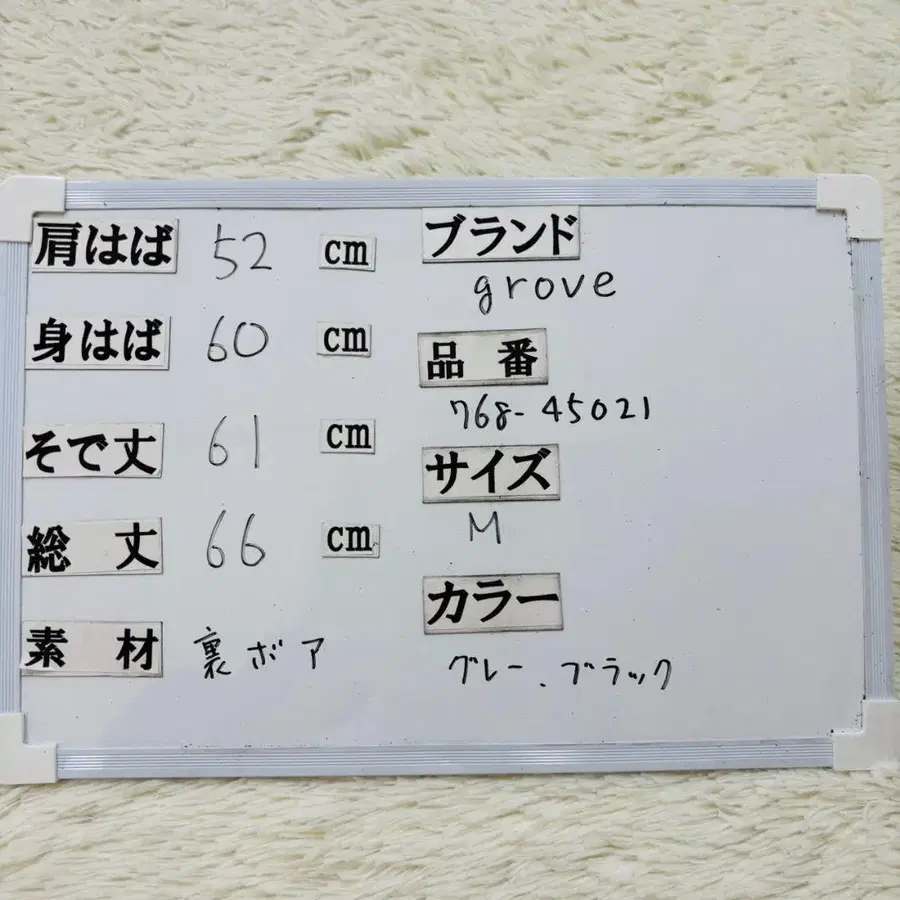 肩はば 52 cm
身はば 60 cm
そで丈 61 cm
総丈 66 cm
素材 裏ボア
ブランド
grove
品番
768-45021
サイズ
M
カラー
グレー、ブラック